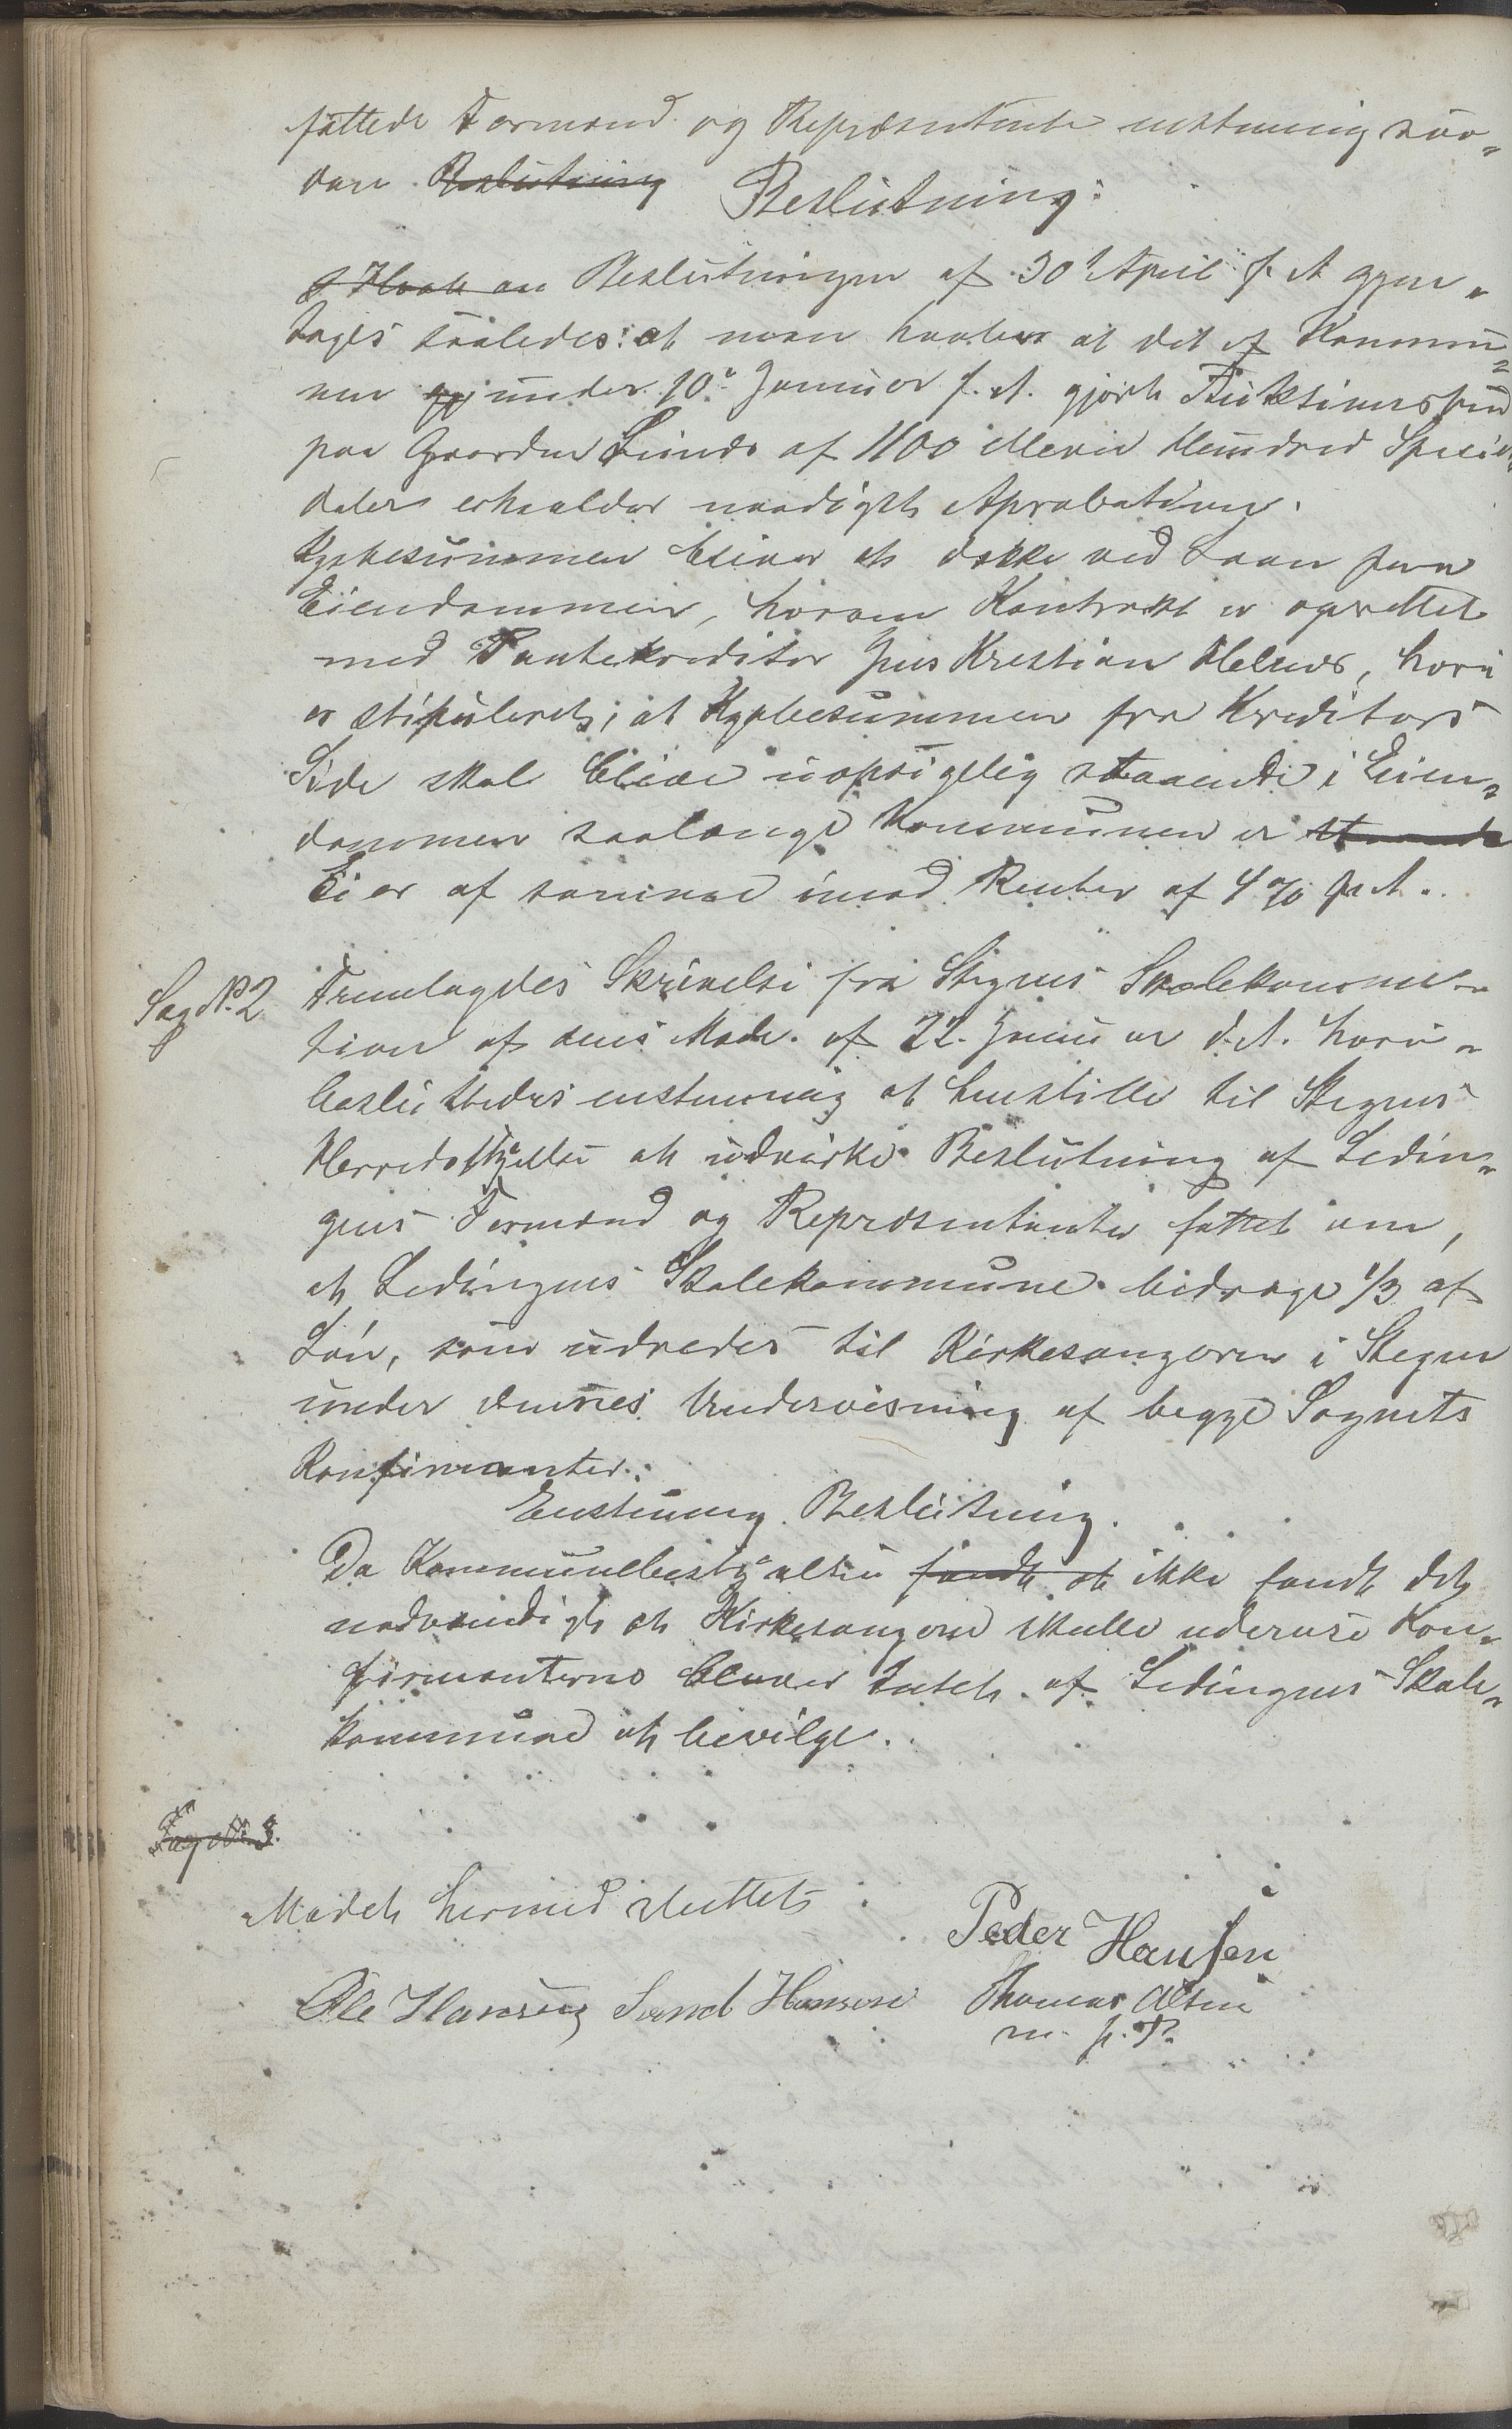 fattede Formænd og Repræsentanter enstemmig saa-
dan Beslutning Beslutning:
Beslutningen af 30te April f. A gjen-
tages saaledes: at man haaber at det af Kommu-
nen gj under 10de Januar f. A. gjorte Auktionsbud
paa Gaarden Leines af 1100 Elleve Hundred Specie-
daler erholder naadigst Aprobation.
Kjøbesummen bliver at dække ved Laan paa
Eiendommen, hvorom Kontrakt er oprettet
med Pantekreditor Jens Kristian Helnes, hvori
er stipuleret; at Kjøbesummen fra Kreditors
Side skal blive uopsigelig staaende i Eien-
dommen saalænge Kommunen er staaende
Eier af samme imod Renter af 4 % pr A.
Sag No. 2 Fremlagdes Skrivelse fra Stegens Skolekommi-
tion af dens Møde af 22. Januar d. A. hvori
besluttedes enstemmig at henstille til Stegens
Herredsstyrelse at udvirke Beslutning af Ledin-
gens Formænd og Repræsentanter fattet om,
at Ledingens Skolekommune bidrage 1/3 af
Løn, som udredes til Kirkesangeren i Stegen
under dennes Undervisning af begge Sognets
Konfirmanter.
Enstemmig Beslutning.
Da Kommunebestyrelsen fandt at ikke fandt det
nødvendigt at Kirkesangeren skulle undervise Kon-
firmanterne blever Intet af Ledingens Skole-
kommune at bevilge.
Sag No. 3.
Mødet hermed sluttet
Peder Hansen
Ole Hansen Svend Hansen Thomas Olsen
m. p. P.